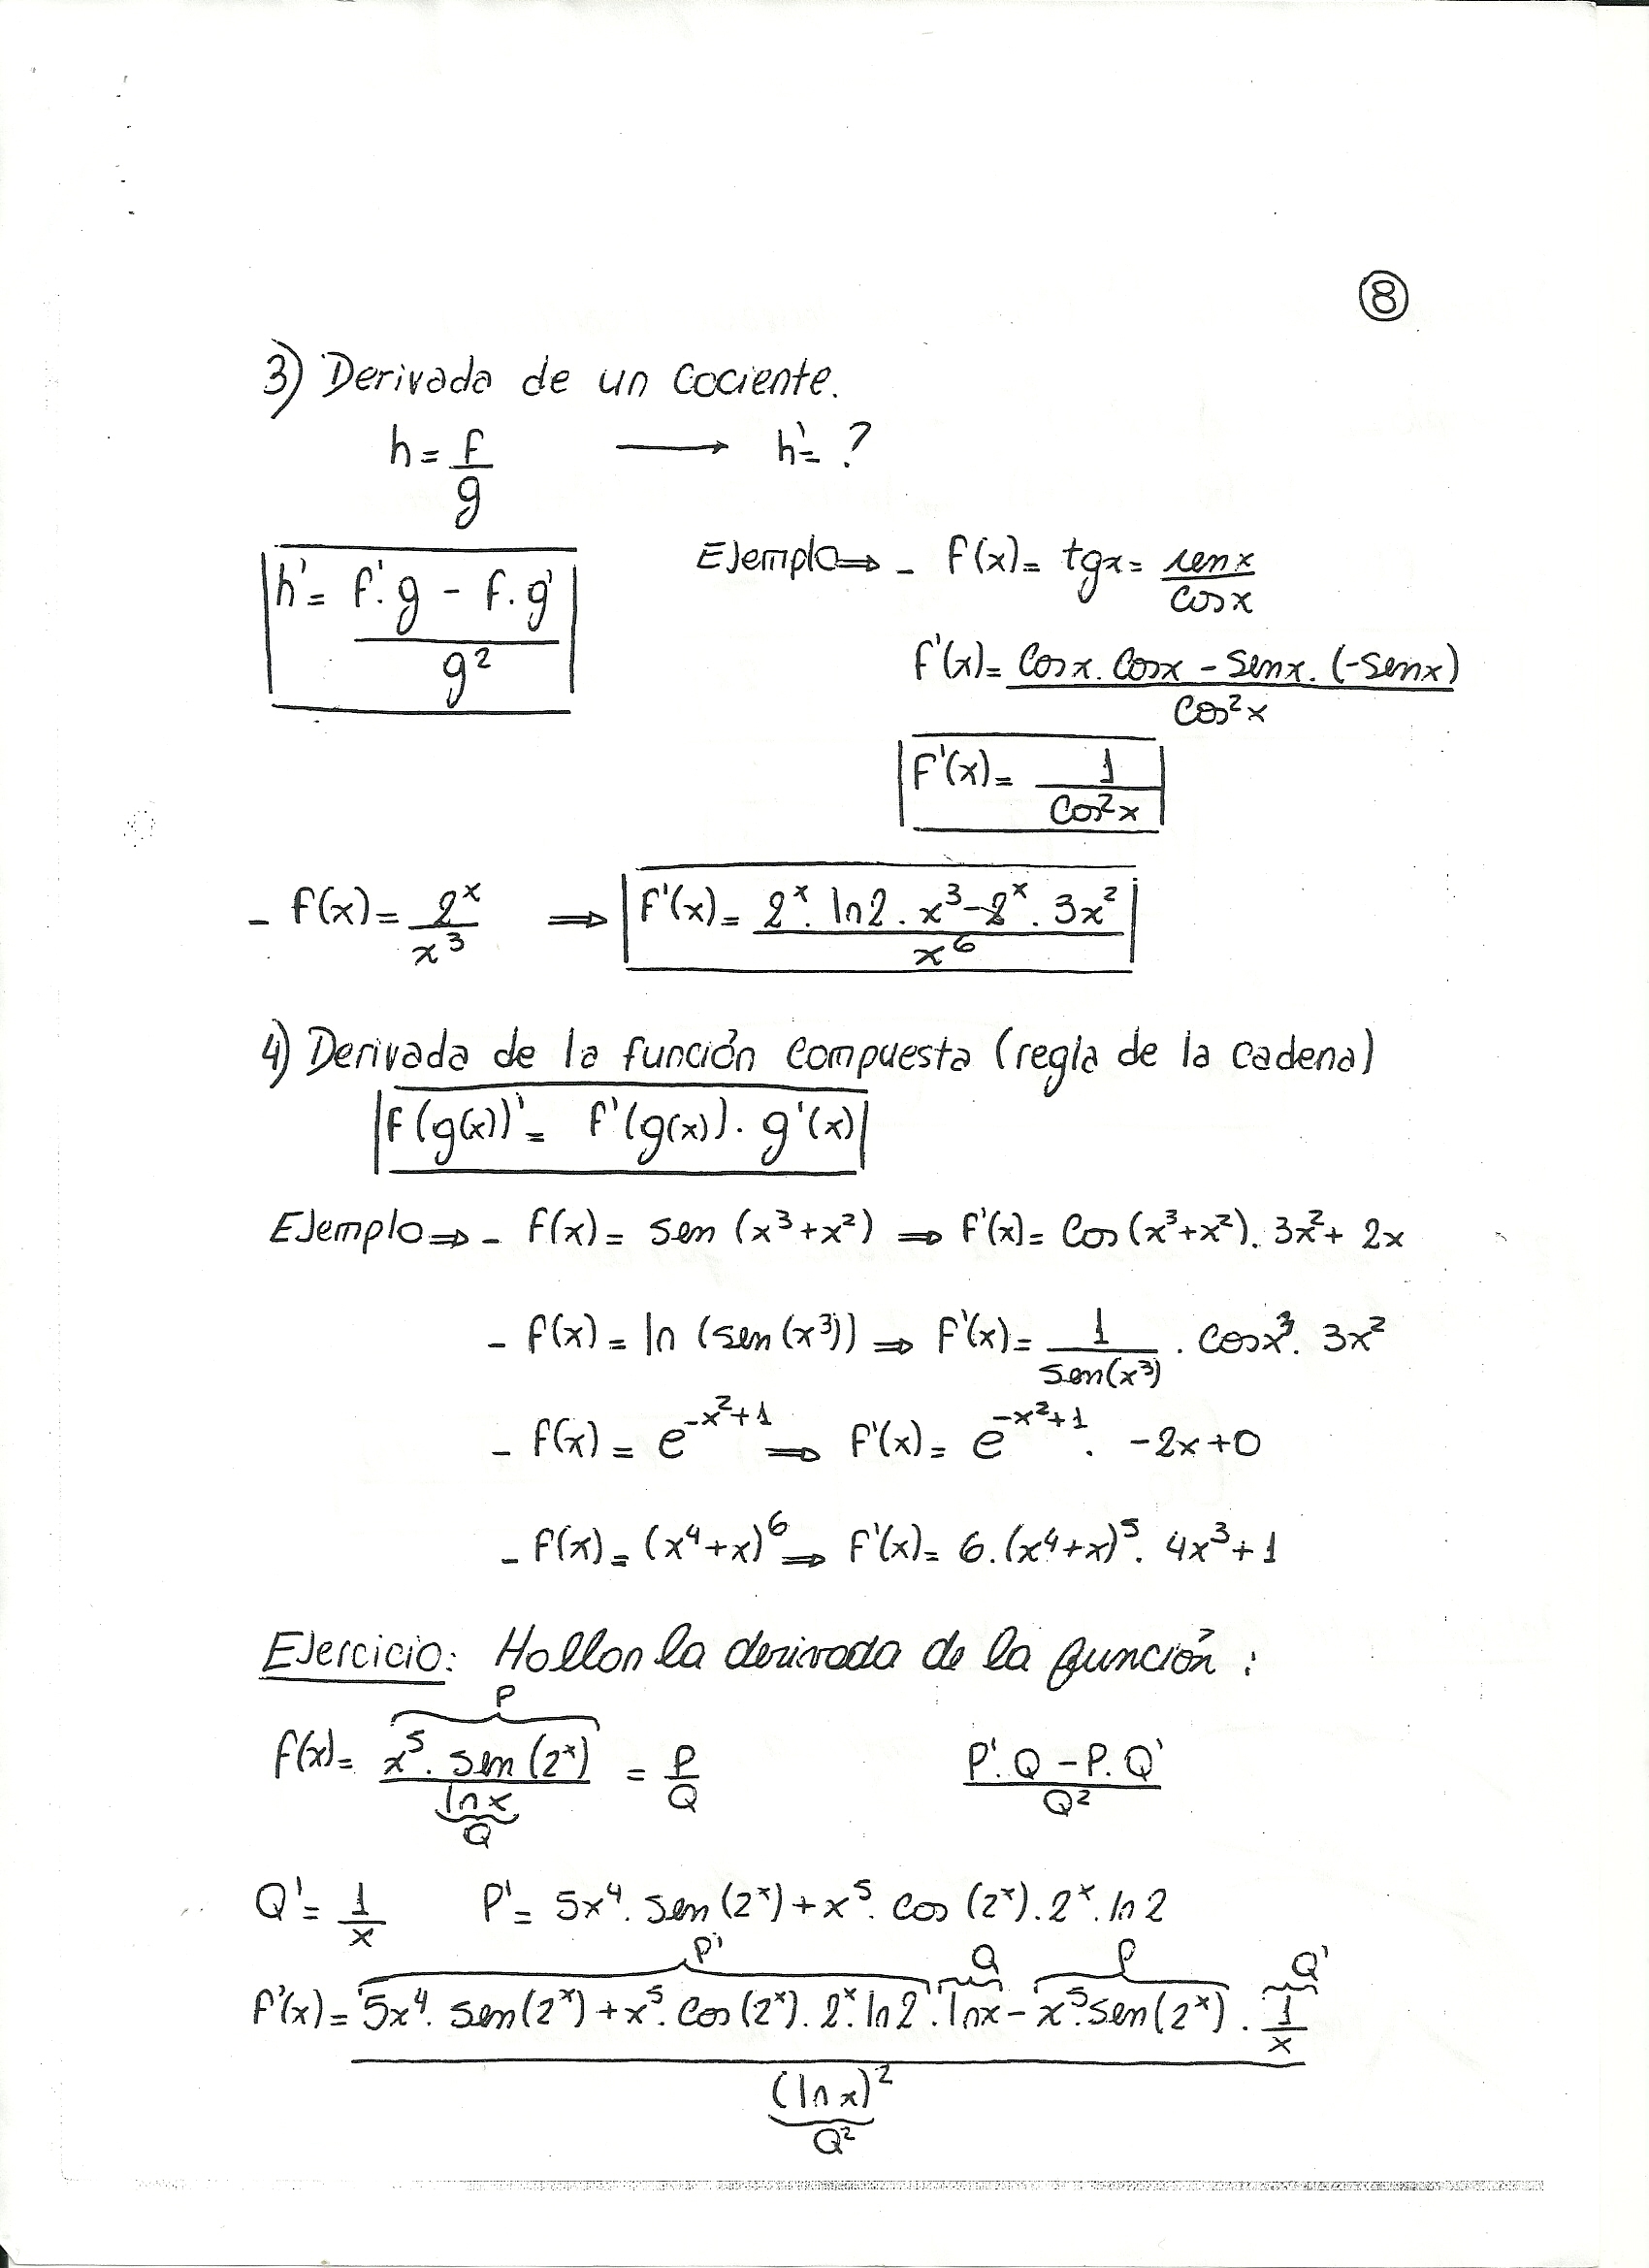 8
3) Derivada de un cociente.
h = f/g ⟶ h' = ?
h' = (f'. g - f. g') / g²
Ejemplo ⇒ - f(x) = tgx = senx/cosx
f'(x) = (cosx. cosx - senx. (-senx)) / cos²x
f'(x) = 1/cos²x
- f(x) = 2ˣ/x³ ⇒ f'(x) = (2ˣ. ln2. x³ - 2ˣ. 3x²) / x⁶
4) Derivada de la función compuesta (regla de la cadena)
f(g(x))' = f'(g(x)). g'(x)
Ejemplo ⇒ - f(x) = sen (x³+x²) ⇒ f'(x) = cos (x³+x²). 3x²+ 2x
- f(x) = ln (sen (x³)) ⇒ f'(x) = 1/sen(x³) . cosx³. 3x²
- f(x) = e^(-x²+1) ⇒ f'(x) = e^(-x²+1) . -2x+0
- f(x) = (x⁴+x)⁶ ⇒ f'(x) = 6. (x⁴+x)⁵. 4x³+1
Ejercicio: Hallon la derivada de la función :
P
f(x) = x⁵. sen (2ˣ) / lnx = P/Q
Q
(P'. Q - P. Q') / Q²
Q' = 1/x P' = 5x⁴. sen (2ˣ) + x⁵. cos (2ˣ). 2ˣ. ln 2
P' Q P Q'
f'(x) = (5x⁴. sen (2ˣ) + x⁵. cos (2ˣ). 2ˣ ln 2 . lnx - x⁵. sen (2ˣ) . 1/x) / (ln x)²
Q²